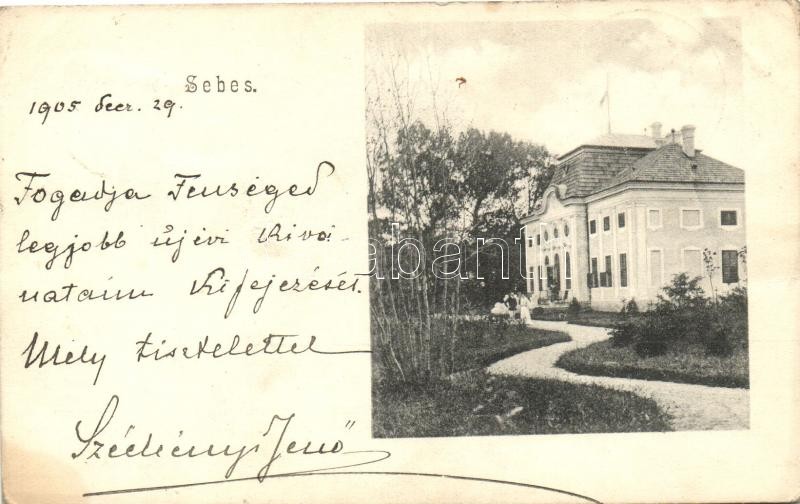 Sebes.
1905 decr. 29.
Fogadja Fenséged
legjobb újévi kivá-
nataim kifejezését.
Mély tisztelettel
Széchényi Jenő
darabanth